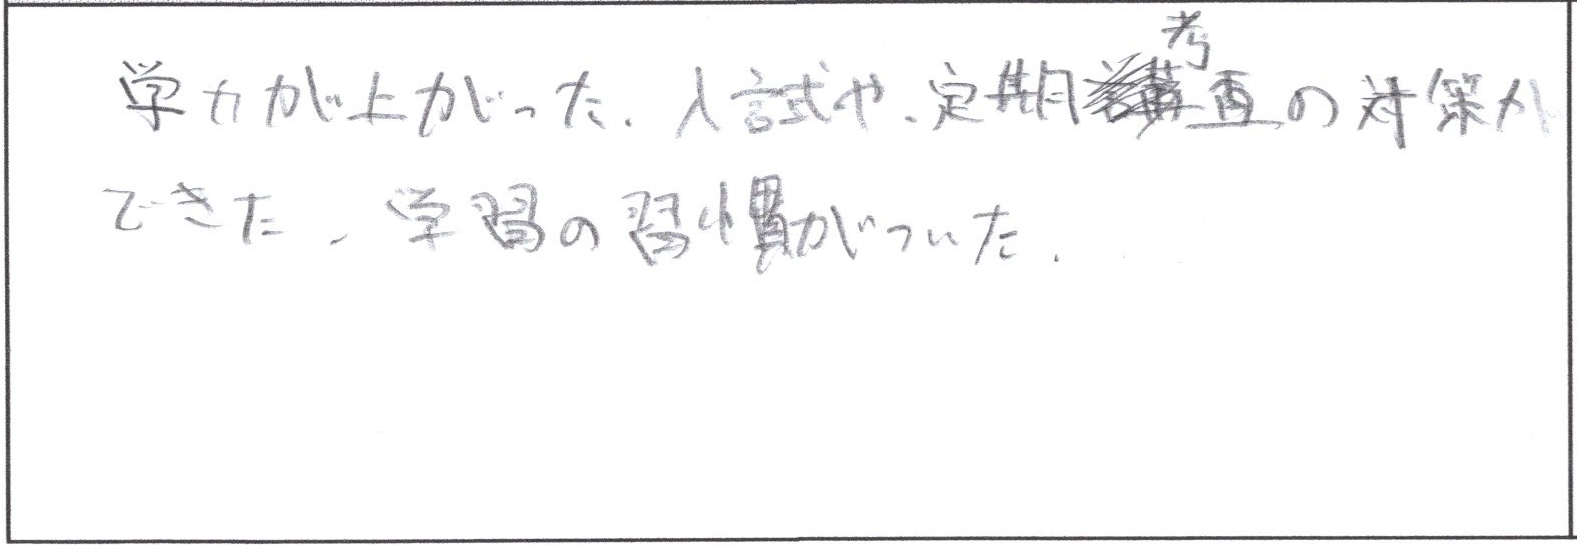 学力が上がった。入試や、定期考査の対策が
できた、学習の習慣がついた。